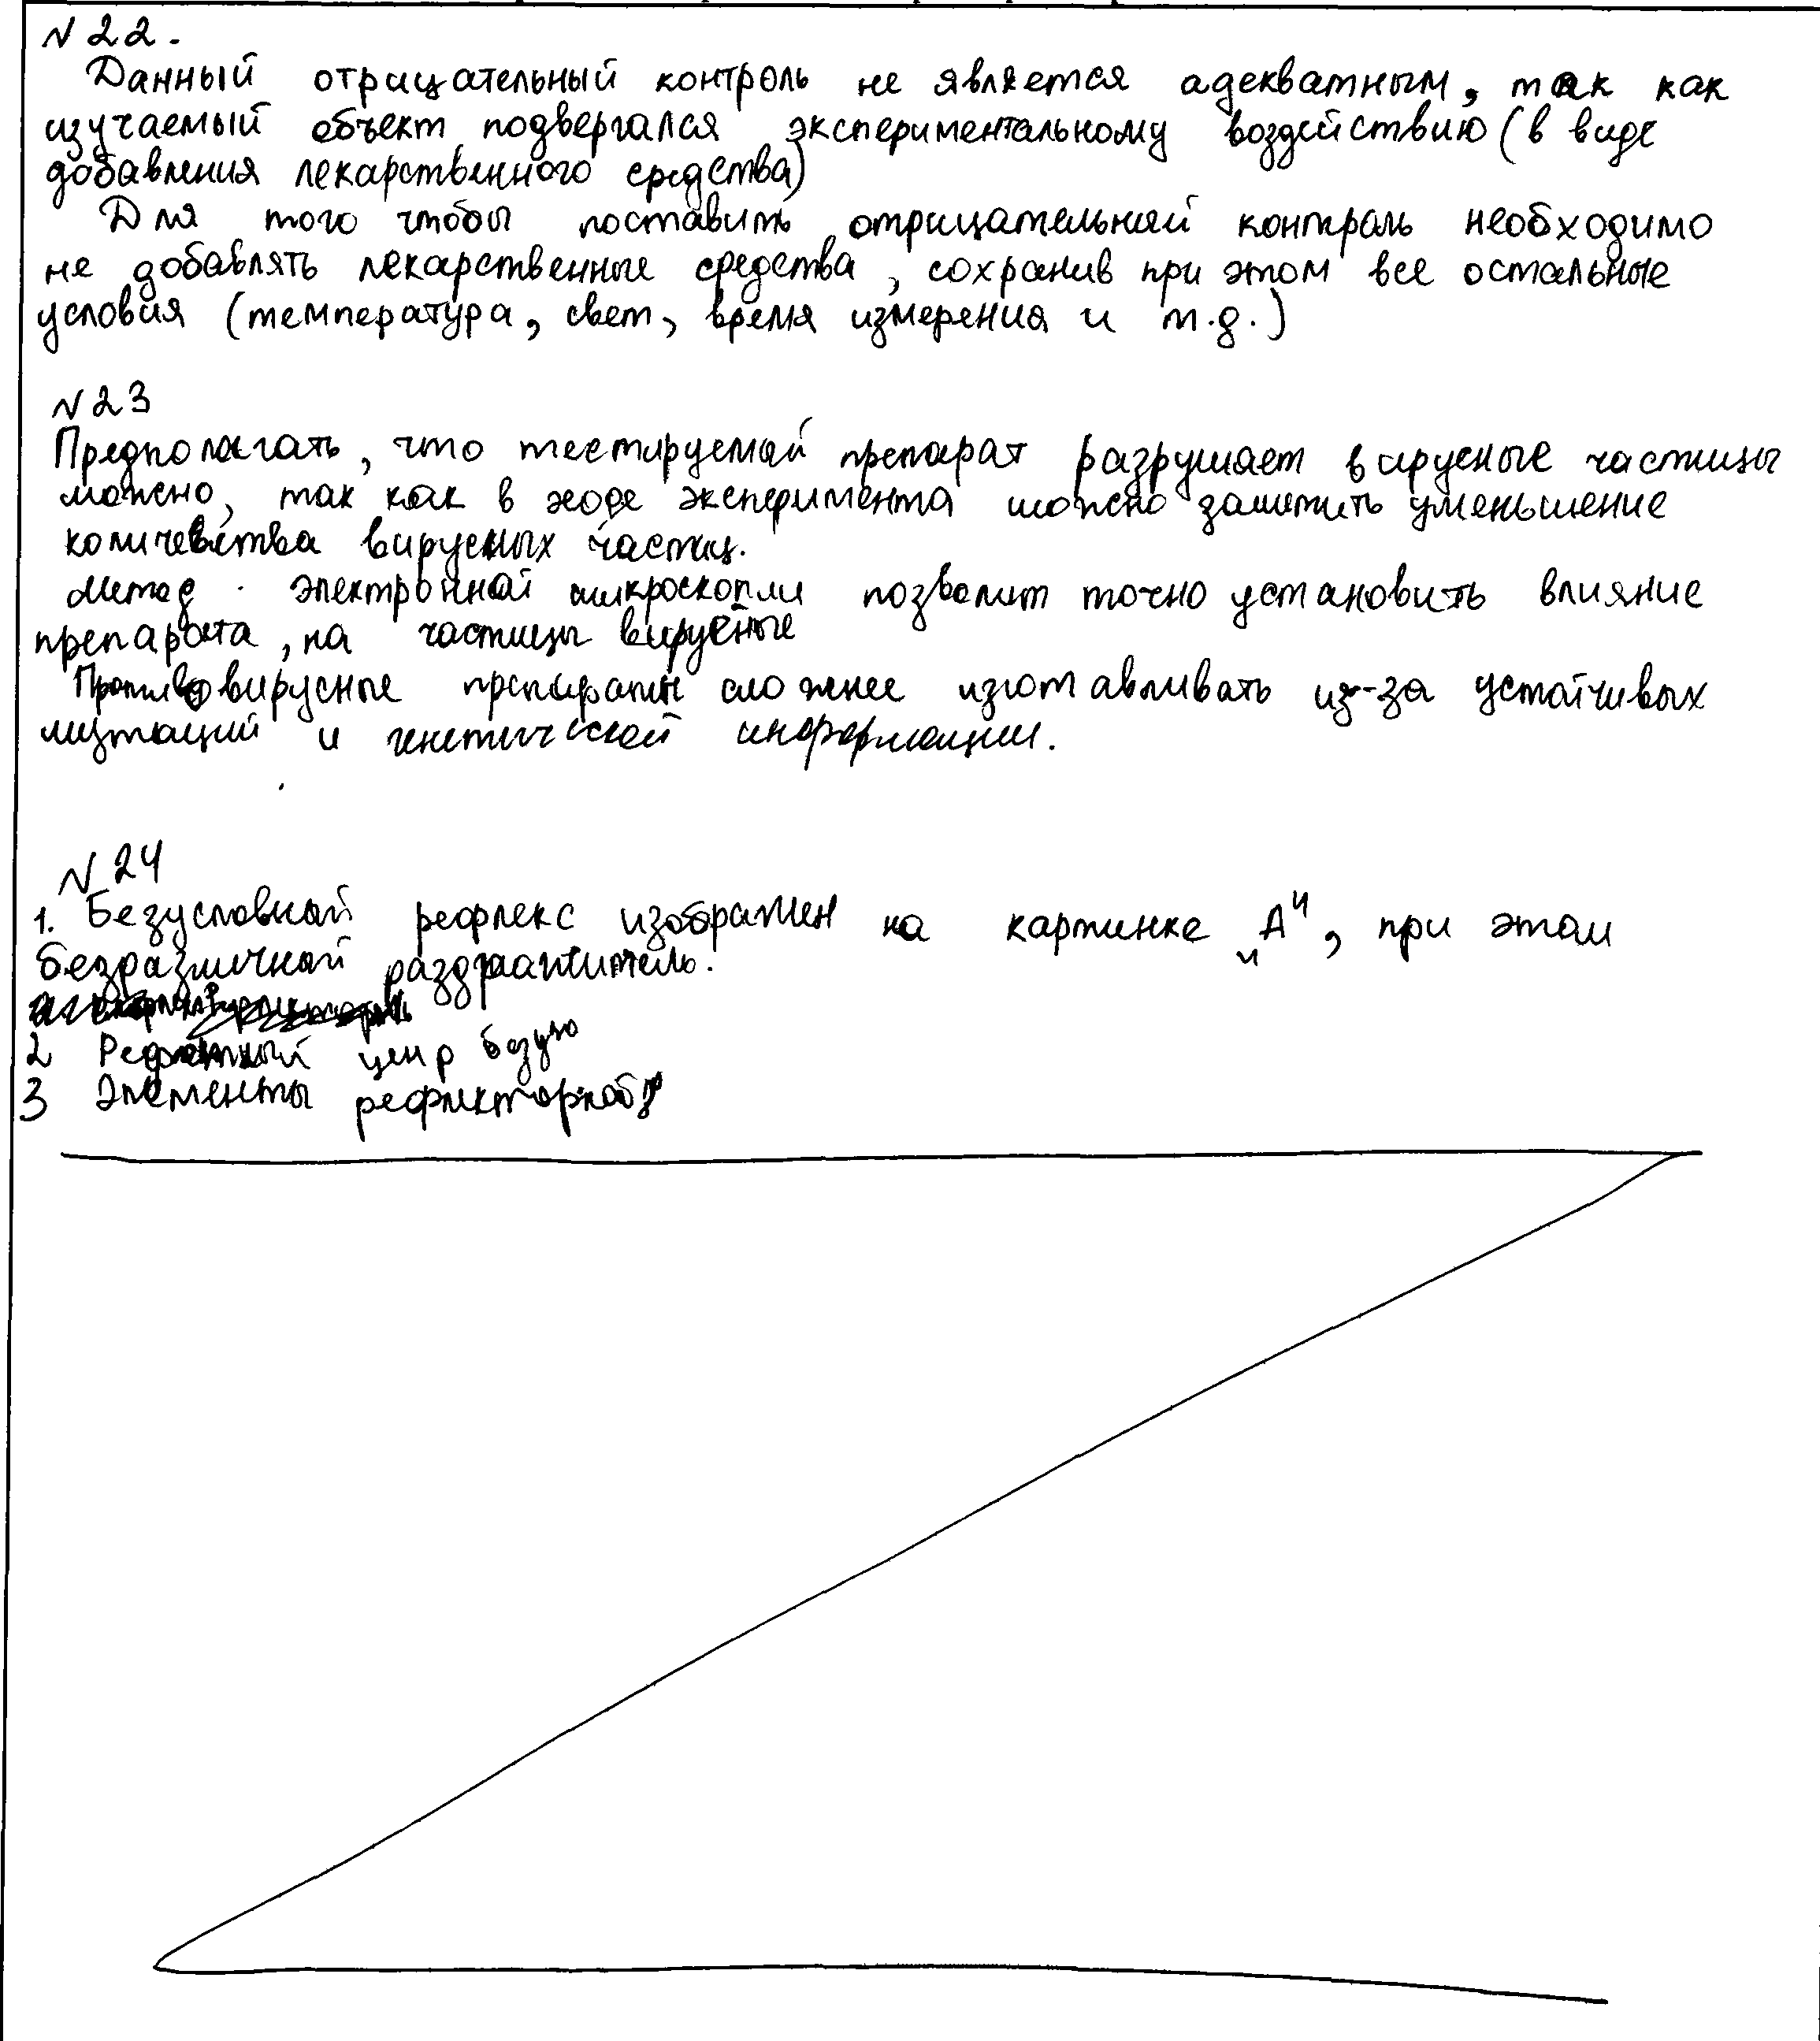 N 22.
Данный отрицательный контроль не является адекватным, так как
изучаемый объект подвергался экспериментальному воздействию (в виде
добавления лекарственного средства)
Для того чтобы поставить отрицательный контроль необходимо
не добавлять лекарственные средства, сохранив при этом все остальные
условия (температура, свет, время измерения и т.д.)
N 23
Предполагать, что тестируемый препарат разрушает вирусные частицы
можно, так как в ходе эксперимента можно заметить уменьшение
количевства вирусных частиц.
Метод электронной микроскопии позволит точно установить влияние
препарата, на частицы вирусные
Противовирусные препараты сложнее изготавливать из-за устойчивых
мутаций и генетической информации.
N 24
1. Безусловный рефлекс изображен на картинке „А", при этом
безразличный раздражитель.
2 ценр безус
3 Элементы рефлекторной